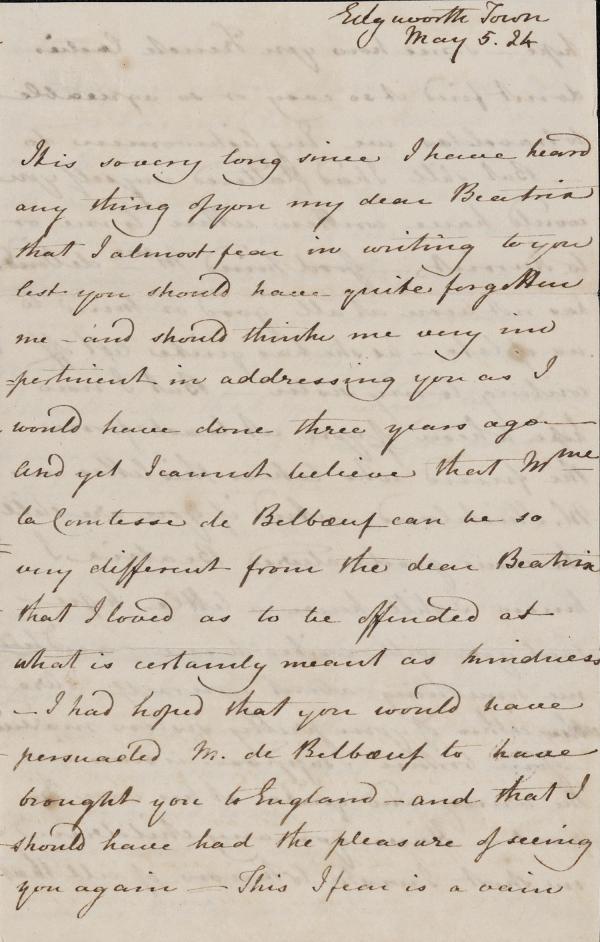 Edgworth Town
May 5. 24
It is so very long since I have heard
any thing of you my dear Beatrix
that I almost fear in writing to you
lest you should have quite forgotten
me – and should think me very im
-pertinent in addressing you as I
would have done three years ago –
And yet I cannot believe that Mme
la Comtesse de Belbœuf can be so
very different from the dear Beatrix
that I loved as to be offended at
what is certainly meant as kindness
– I had hoped that you would have
persuaded M. de Belbœuf to have
brought you to England – and that I
should have had the pleasure of seeing
you again – This I fear is a vain